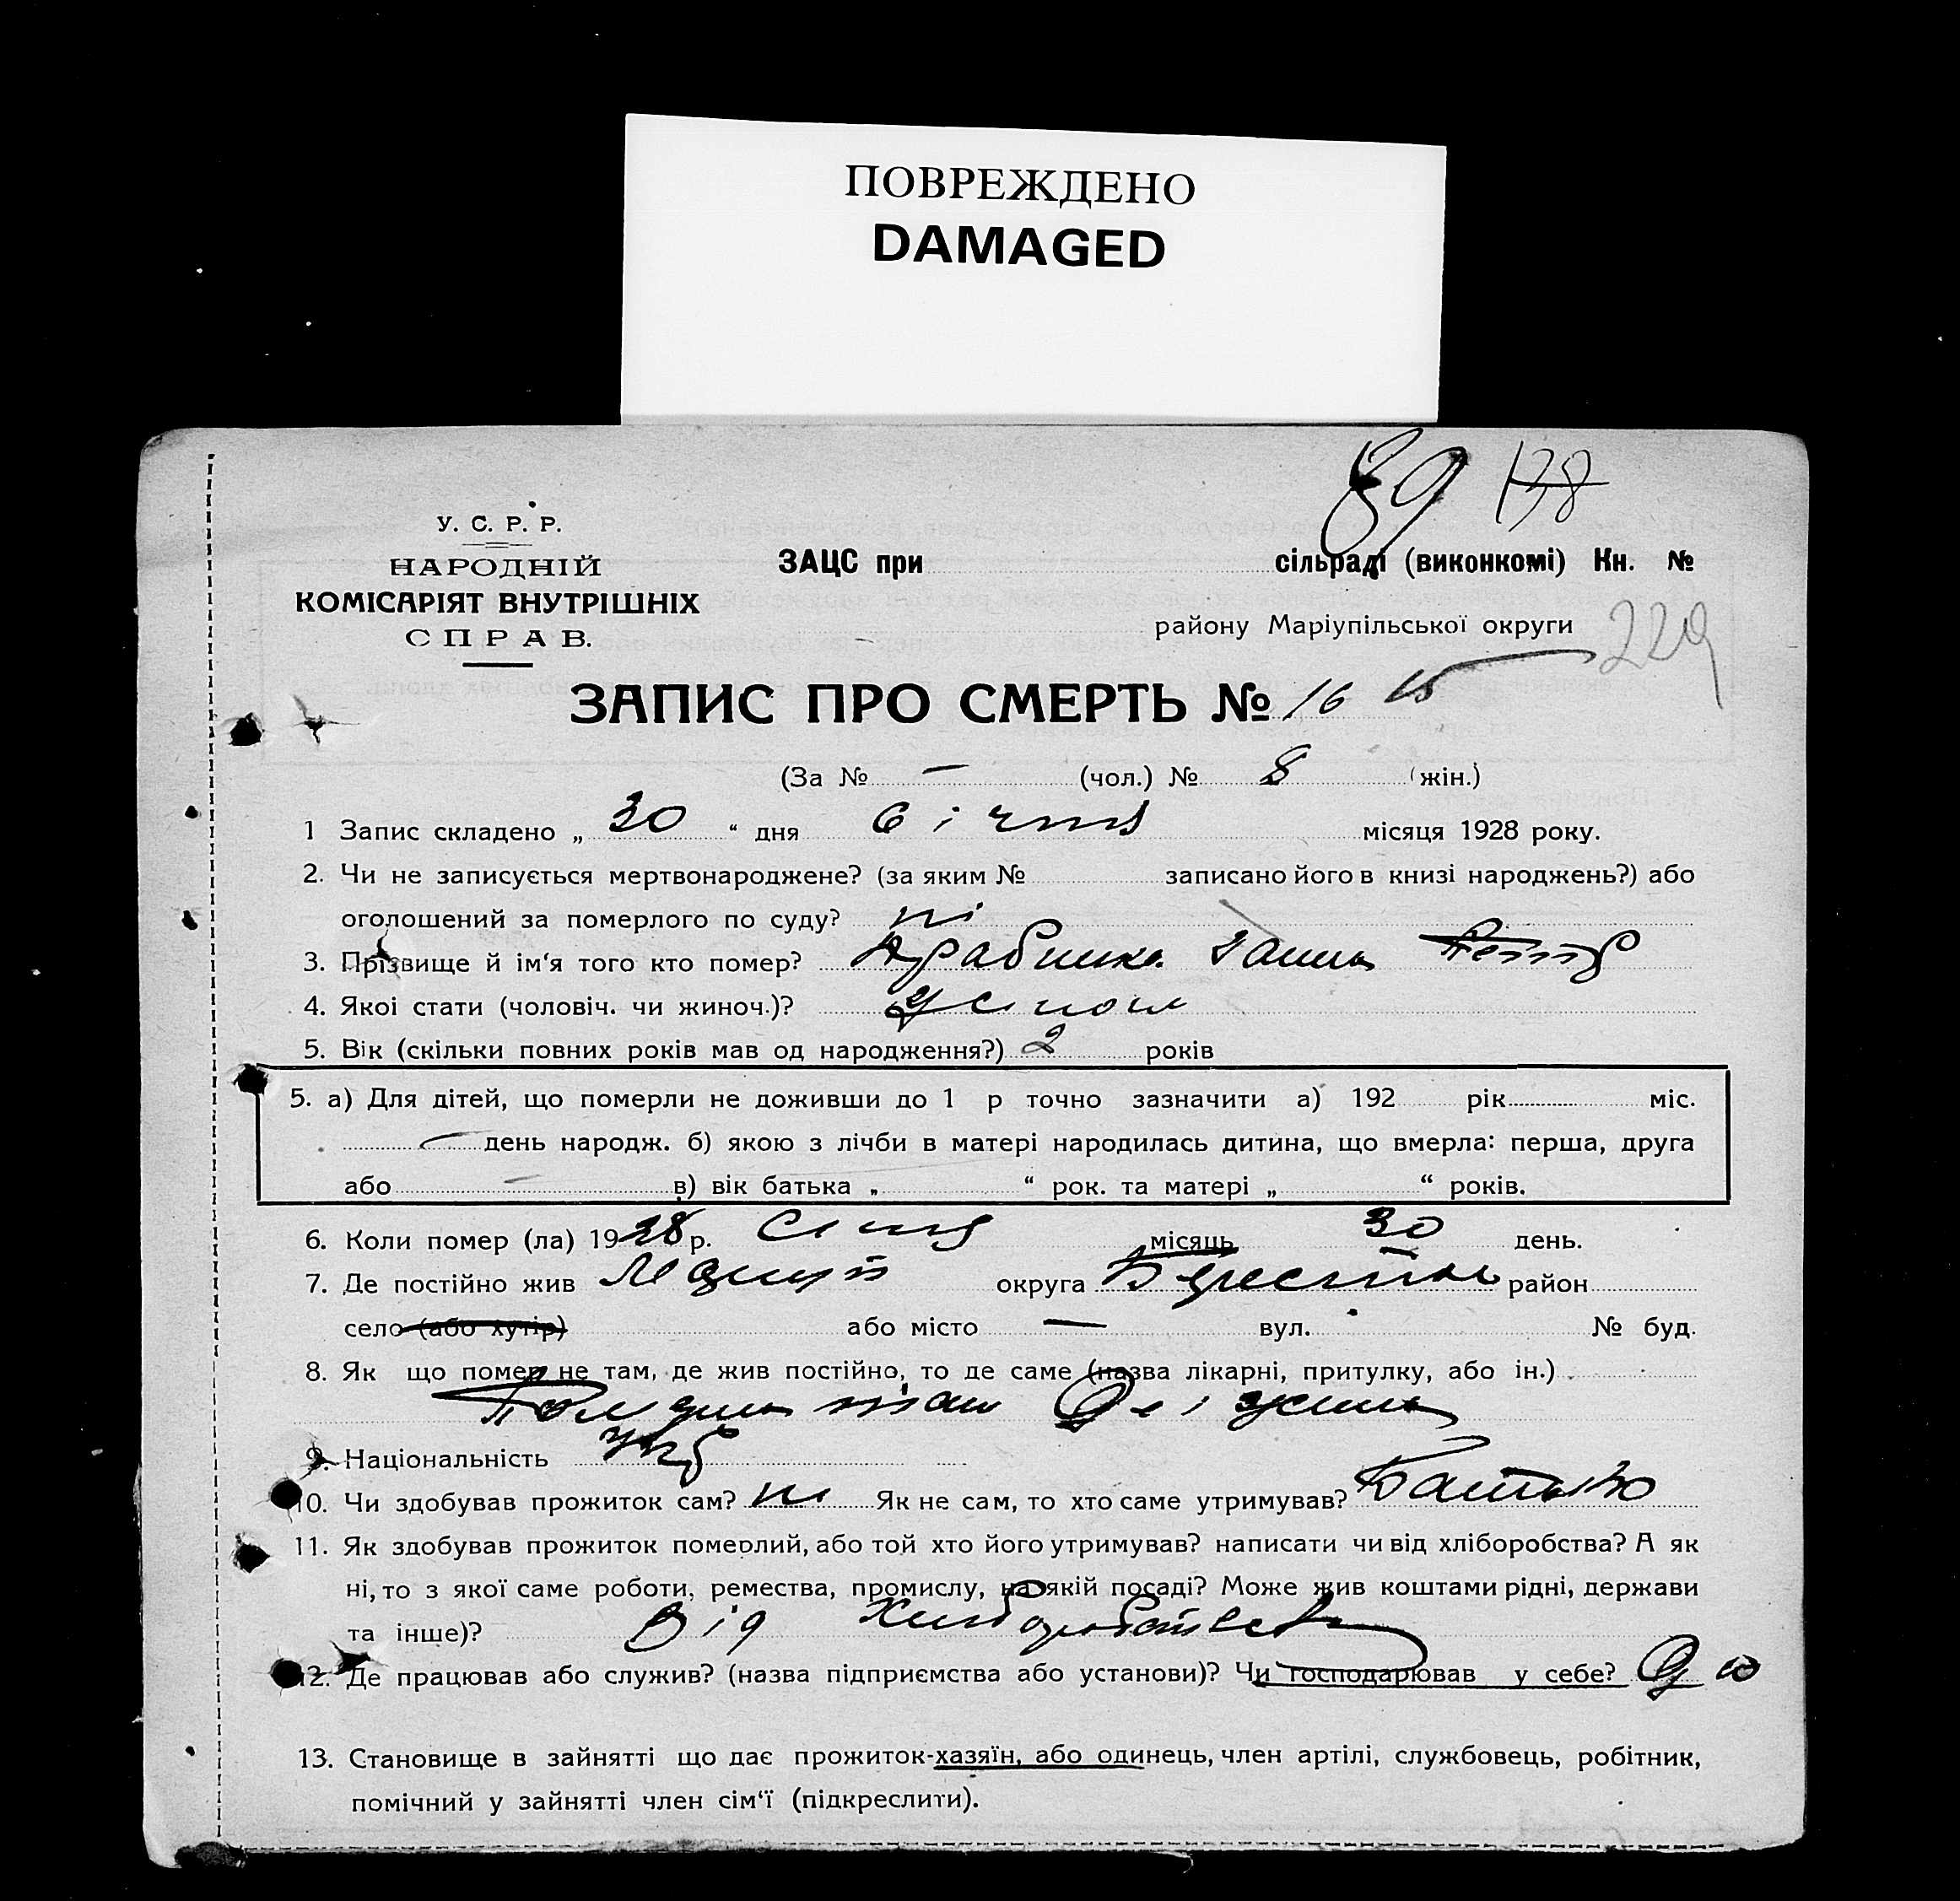 ПОВРЕЖДЕНО
DAMAGED
89 138
У. С. Р. Р.
НАРОДНІЙ
КОМІСАРІЯТ ВНУТРІШНІХ
СПРАВ.
ЗАЦС при сільраді (виконкомі) Кн. №
району Маріупільської округи 229
ЗАПИС ПРО СМЕРТЬ № 16
(За № — (чол.) № 8 (жін.)
1 Запис складено „ 30 “ дня Січня місяця 1928 року.
2. Чи не записується мертвонароджене? (за яким № записано його в книзі народжень?) або
оголошений за померлого по суду? ні
3. Прізвище й ім‘я того хто помер?
4. Якоі стати (чоловіч. чи жиноч.)?
5. Вік (скільки повних років мав од народження?) 2 років
5. а) Для дітей, що померли не доживши до 1 р точно зазначити а) 192 рік міс.
— день народж. б) якою з лічби в матері народилась дитина, що вмерла: перша, друга
або — в) вік батька „ “ рок. та матері „ “ років.
6. Коли помер (ла) 1928 р. місяць 30 день.
7. Де постійно жив округа район
село (або хутір) або місто — вул. № буд.
8. Як що помер не там, де жив постійно, то де саме (назва лікарні, притулку, або ін.)
9. Національність Укр
10. Чи здобував прожиток сам? ні Як не сам, то хто саме утримував? Батько
11. Як здобував прожиток померлий, або той хто його утримував? написати чи від хліборобства? А як
ні, то з якої саме роботи, ремества, промислу, на якій посаді? Може жив коштами рідні, держави
та інше)? Від Хліборобства
12. Де працював або служив? (назва підприємства або установи)? Чи господарював у себе?
13. Становище в зайнятті що дає прожиток-хазяїн, або одинець, член артілі, службовець, робітник,
помічний у зайнятті член сім‘ї (підкреслити).